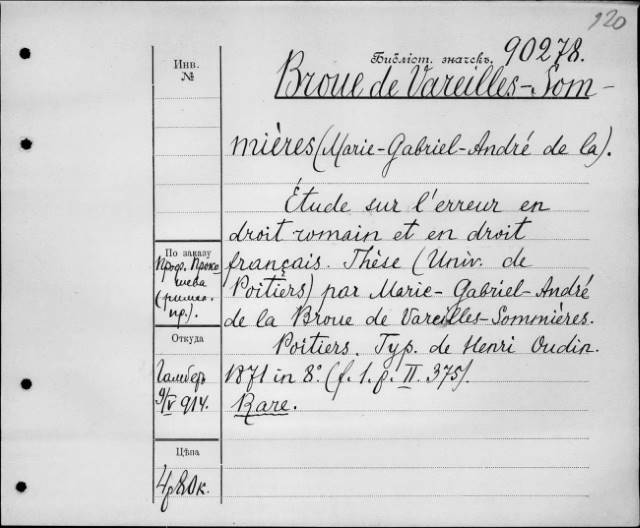 920
Инв.
№
Библіот. значекъ. 90278.
Broue de Vareilles-Som-
mières (Marie-Gabriel-André de la).
Étude sur l'erreur en
droit romain et en droit
français. Thèse (Univ. de
Poitiers) par Marie-Gabriel-André
de la Broue de Vareilles-Sommières.
Poitiers. Typ. de Henri Oudin.
1871 in 8°. (f. 1. p. II. 375).
Rare.
По заказу
Проф. Проко
шева
(римск.
пр.).
Откуда
Гамберъ
9/V 914.
Цѣна
4р80к.